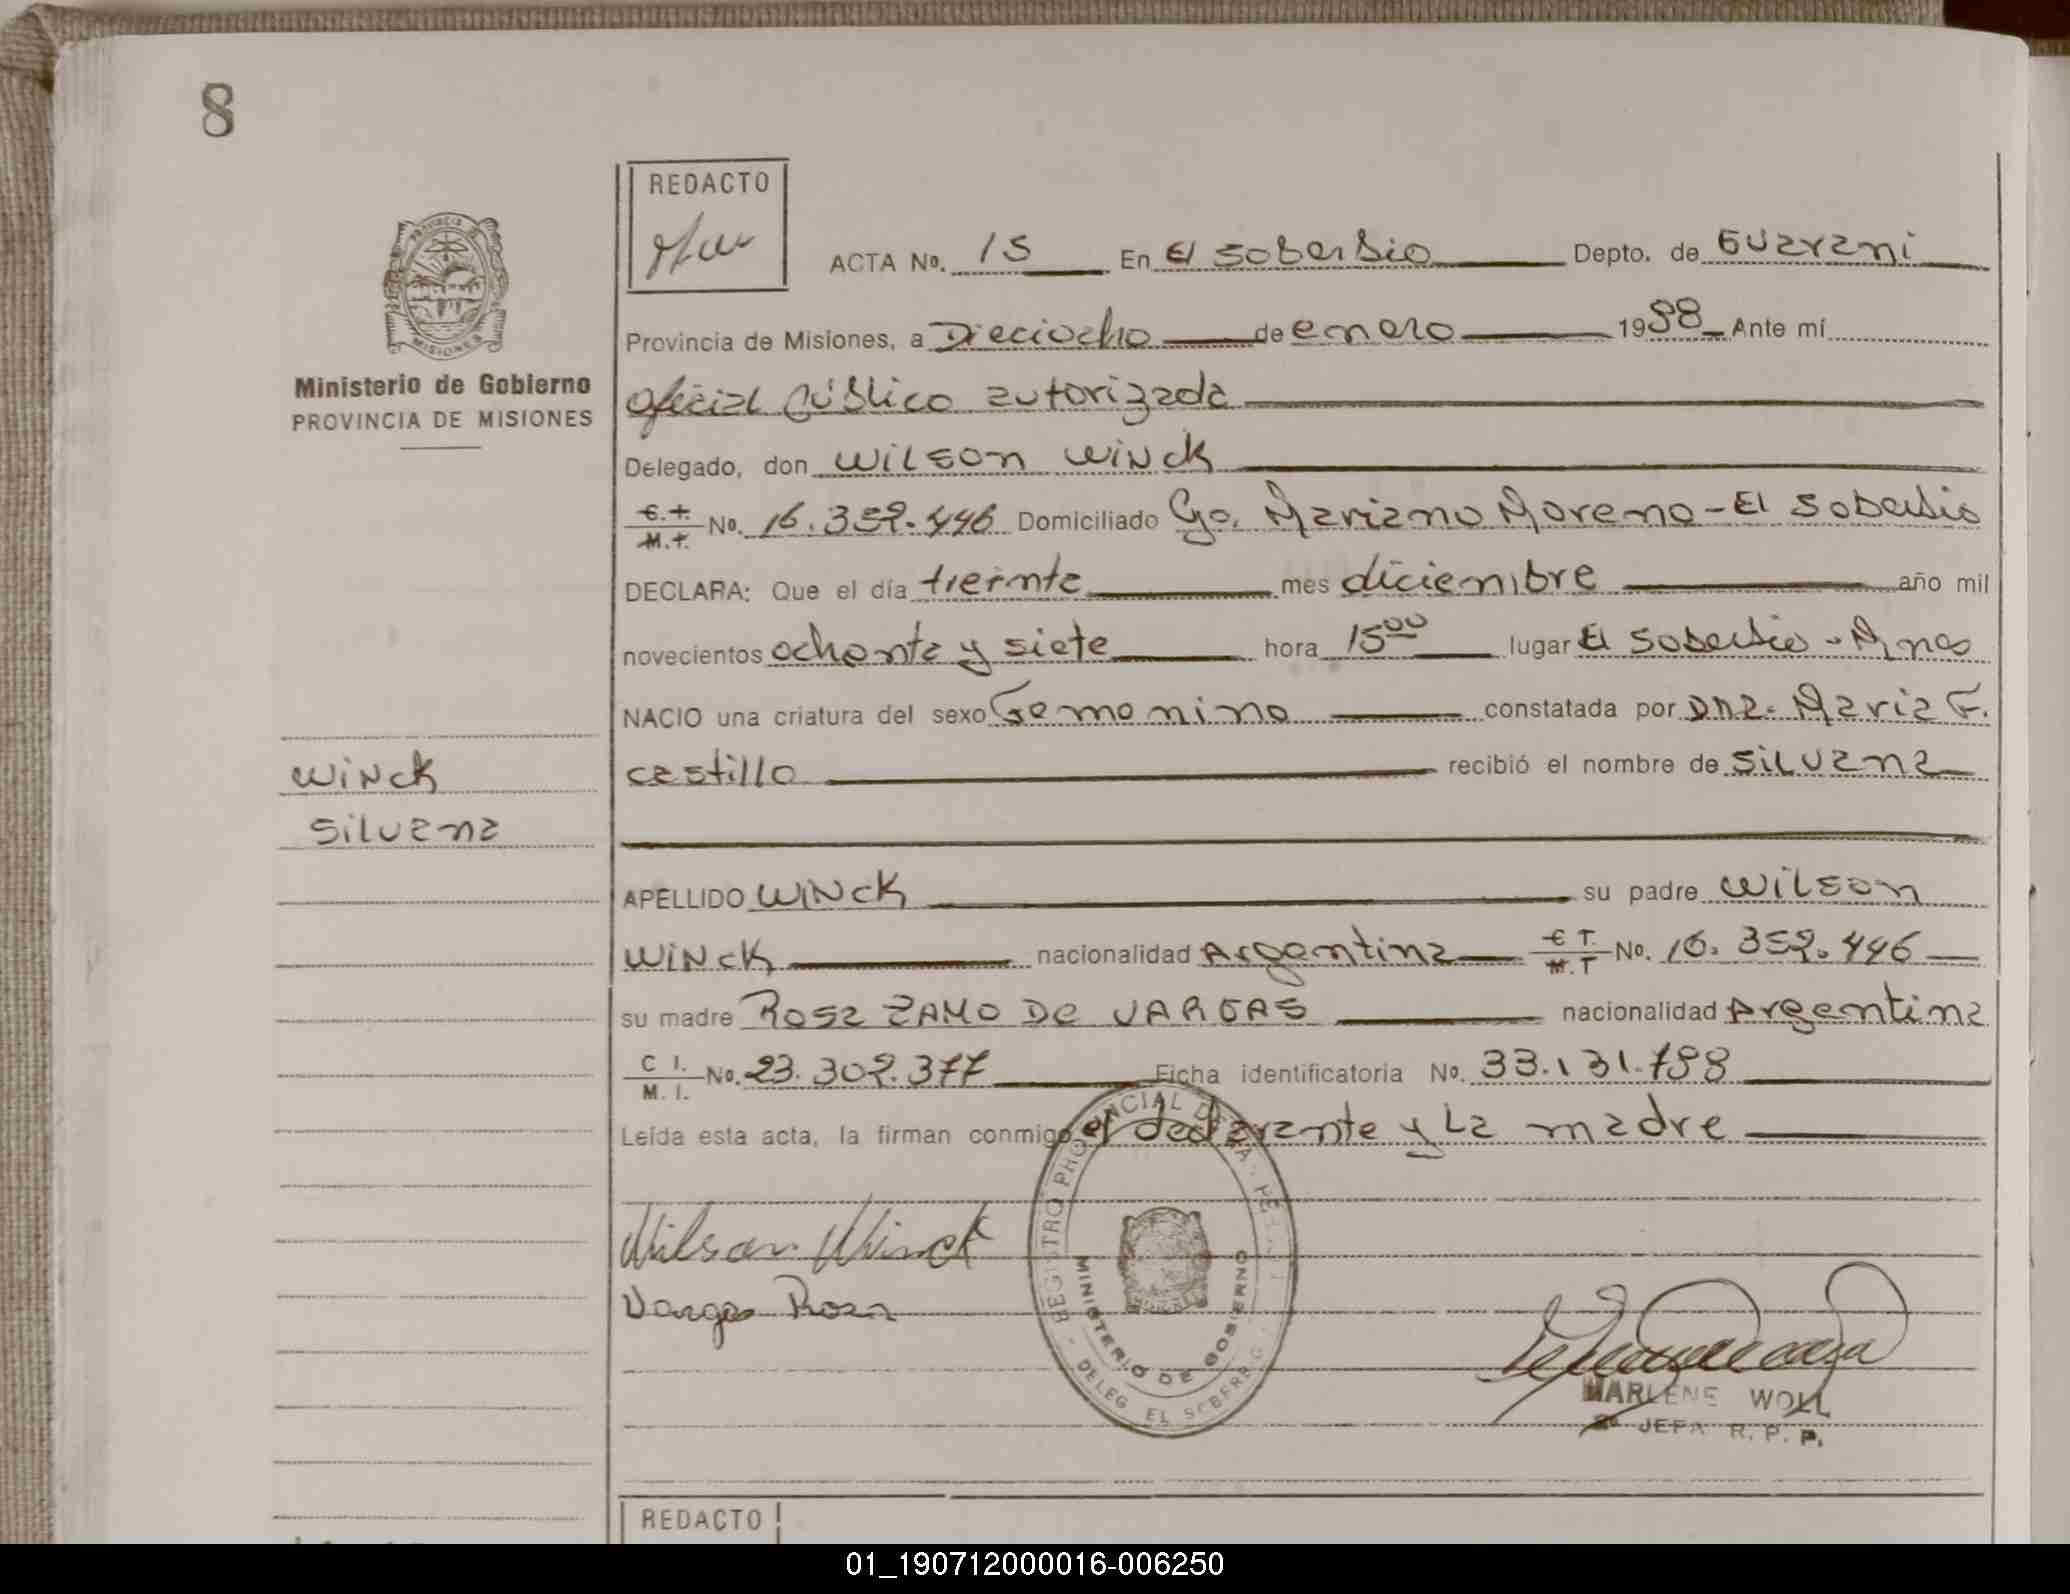 8
REDACTO
ACTA No. 15 En El Soberbio Depto. de Guarani
Provincia de Misiones, a Dieciocho de enero 1988 Ante mí
oficial Público autorizada
Ministerio de Gobierno
PROVINCIA DE MISIONES
Delegado, don Wilson Winck
C.I. M.I. No. 16.359.446 Domiciliado Go. Mariano Moreno - El Soberbio
DECLARA: Que el día treinta mes diciembre año mil
novecientos ochenta y siete hora 15 00 lugar El Soberbio - Mnes
NACIO una criatura del sexo Femenino constatada por Dña. Maria F.
Castillo recibió el nombre de Silvana
Winck
Silvana
APELLIDO Winck su padre Wilson
Winck nacionalidad Argentina No. 16.359.446
su madre Rosa ZAMO DE VARGAS nacionalidad Argentina
C I. M. I. No. 23.302.377 Ficha identificatoria No. 33.131.788
Leída esta acta, la firman conmigo, el declarante y La madre
Wilson Winck
Vargas Rosa
REGISTRO PROVINCIAL DE LA
MINISTERIO DE GOBIERNO
DELEG EL SOBERBIO
MARLENE WOLL
JEFA R. P. P.
REDACTO
01_190712000016-006250